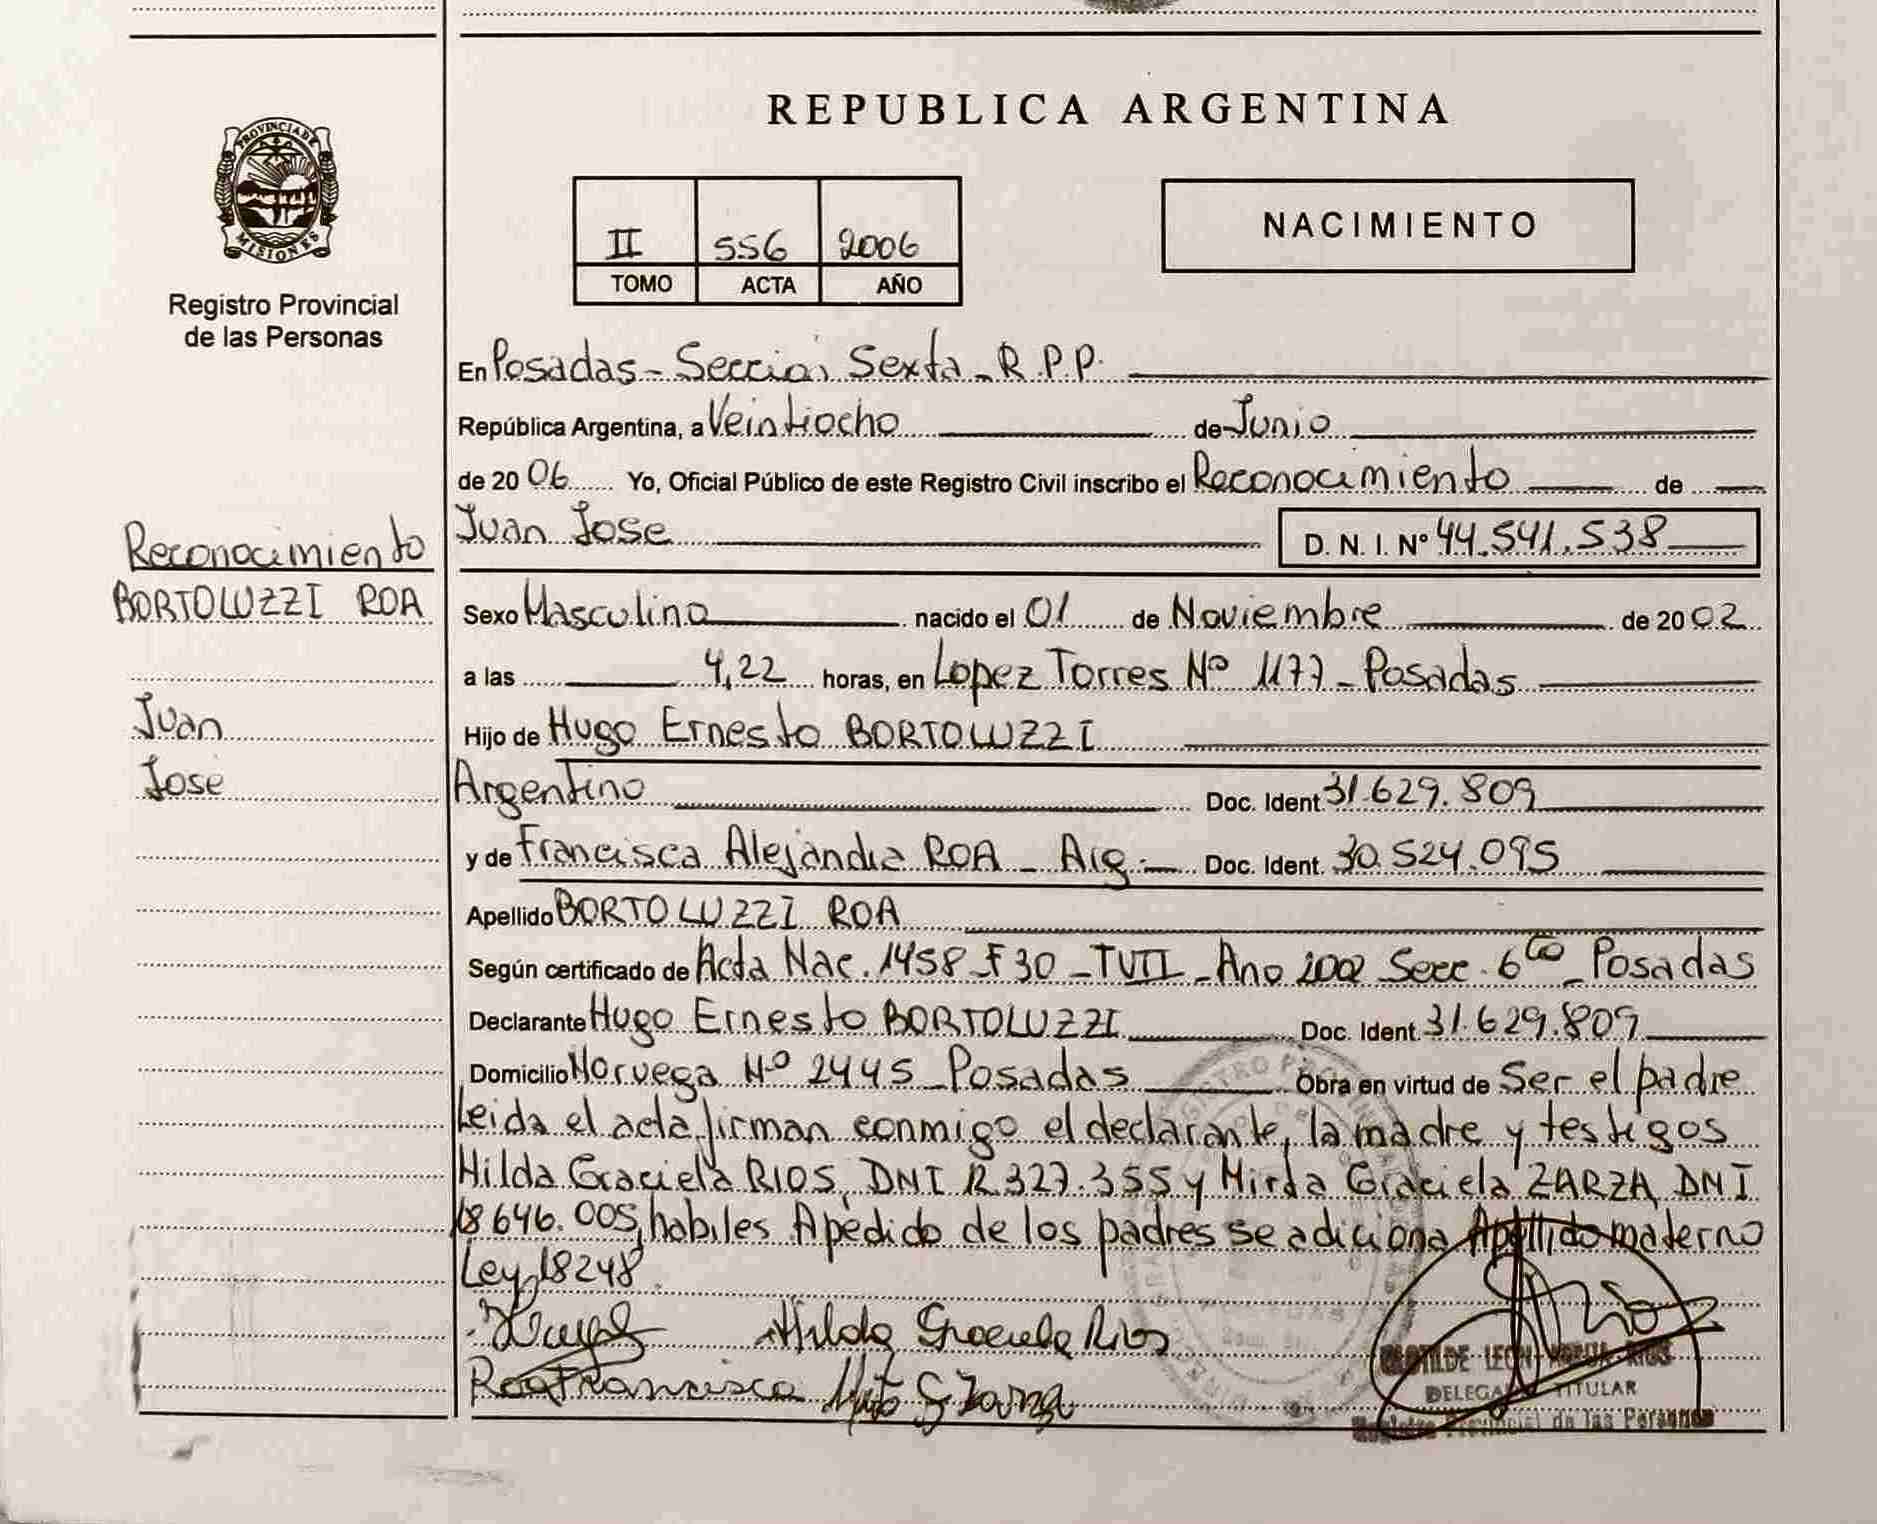 REPUBLICA ARGENTINA
PROVINCIA DE
MISIONES
Registro Provincial
de las Personas
II 556 2006
TOMO ACTA AÑO
NACIMIENTO
En Posadas - Sección Sexta - R.P.P.
República Argentina, a Veintiocho de Junio
de 2006 Yo, Oficial Público de este Registro Civil inscribo el Reconocimiento de
Juan Jose D. N. I. Nº 44.541.538
Reconocimiento
BORTOLUZZI ROA
Juan
José
Sexo Masculino nacido el 01 de Noviembre de 2002
a las 4,22 horas, en Lopez Torres Nº 1177 - Posadas
Hijo de Hugo Ernesto BORTOLUZZI
Argentino Doc. Ident. 31.629.809
y de Francisca Alejandra ROA - Arg. Doc. Ident. 30.524.095
Apellido BORTOLUZZI ROA
Según certificado de Acta Nac. 1458 - F 30 - TVII - Ano 2002 Secc. 6ta - Posadas
Declarante Hugo Ernesto BORTOLUZZI Doc. Ident. 31.629.809
Domicilio Noruega Nº 2445 - Posadas Obra en virtud de Ser el padre
Leida el acta, firman conmigo el declarante, la madre y testigos
Hilda Graciela RIOS, DNI 12.327.355 y Mirta Graciela ZARZA, DNI
18 646.005, habiles Apedido de los padres se adiciona Apellido materno
Ley 18248.
Hilda Graciela Rios
Roa Francisca G Zarza
LEON
DELEGADO TITULAR
Registro Provincial de las Personas